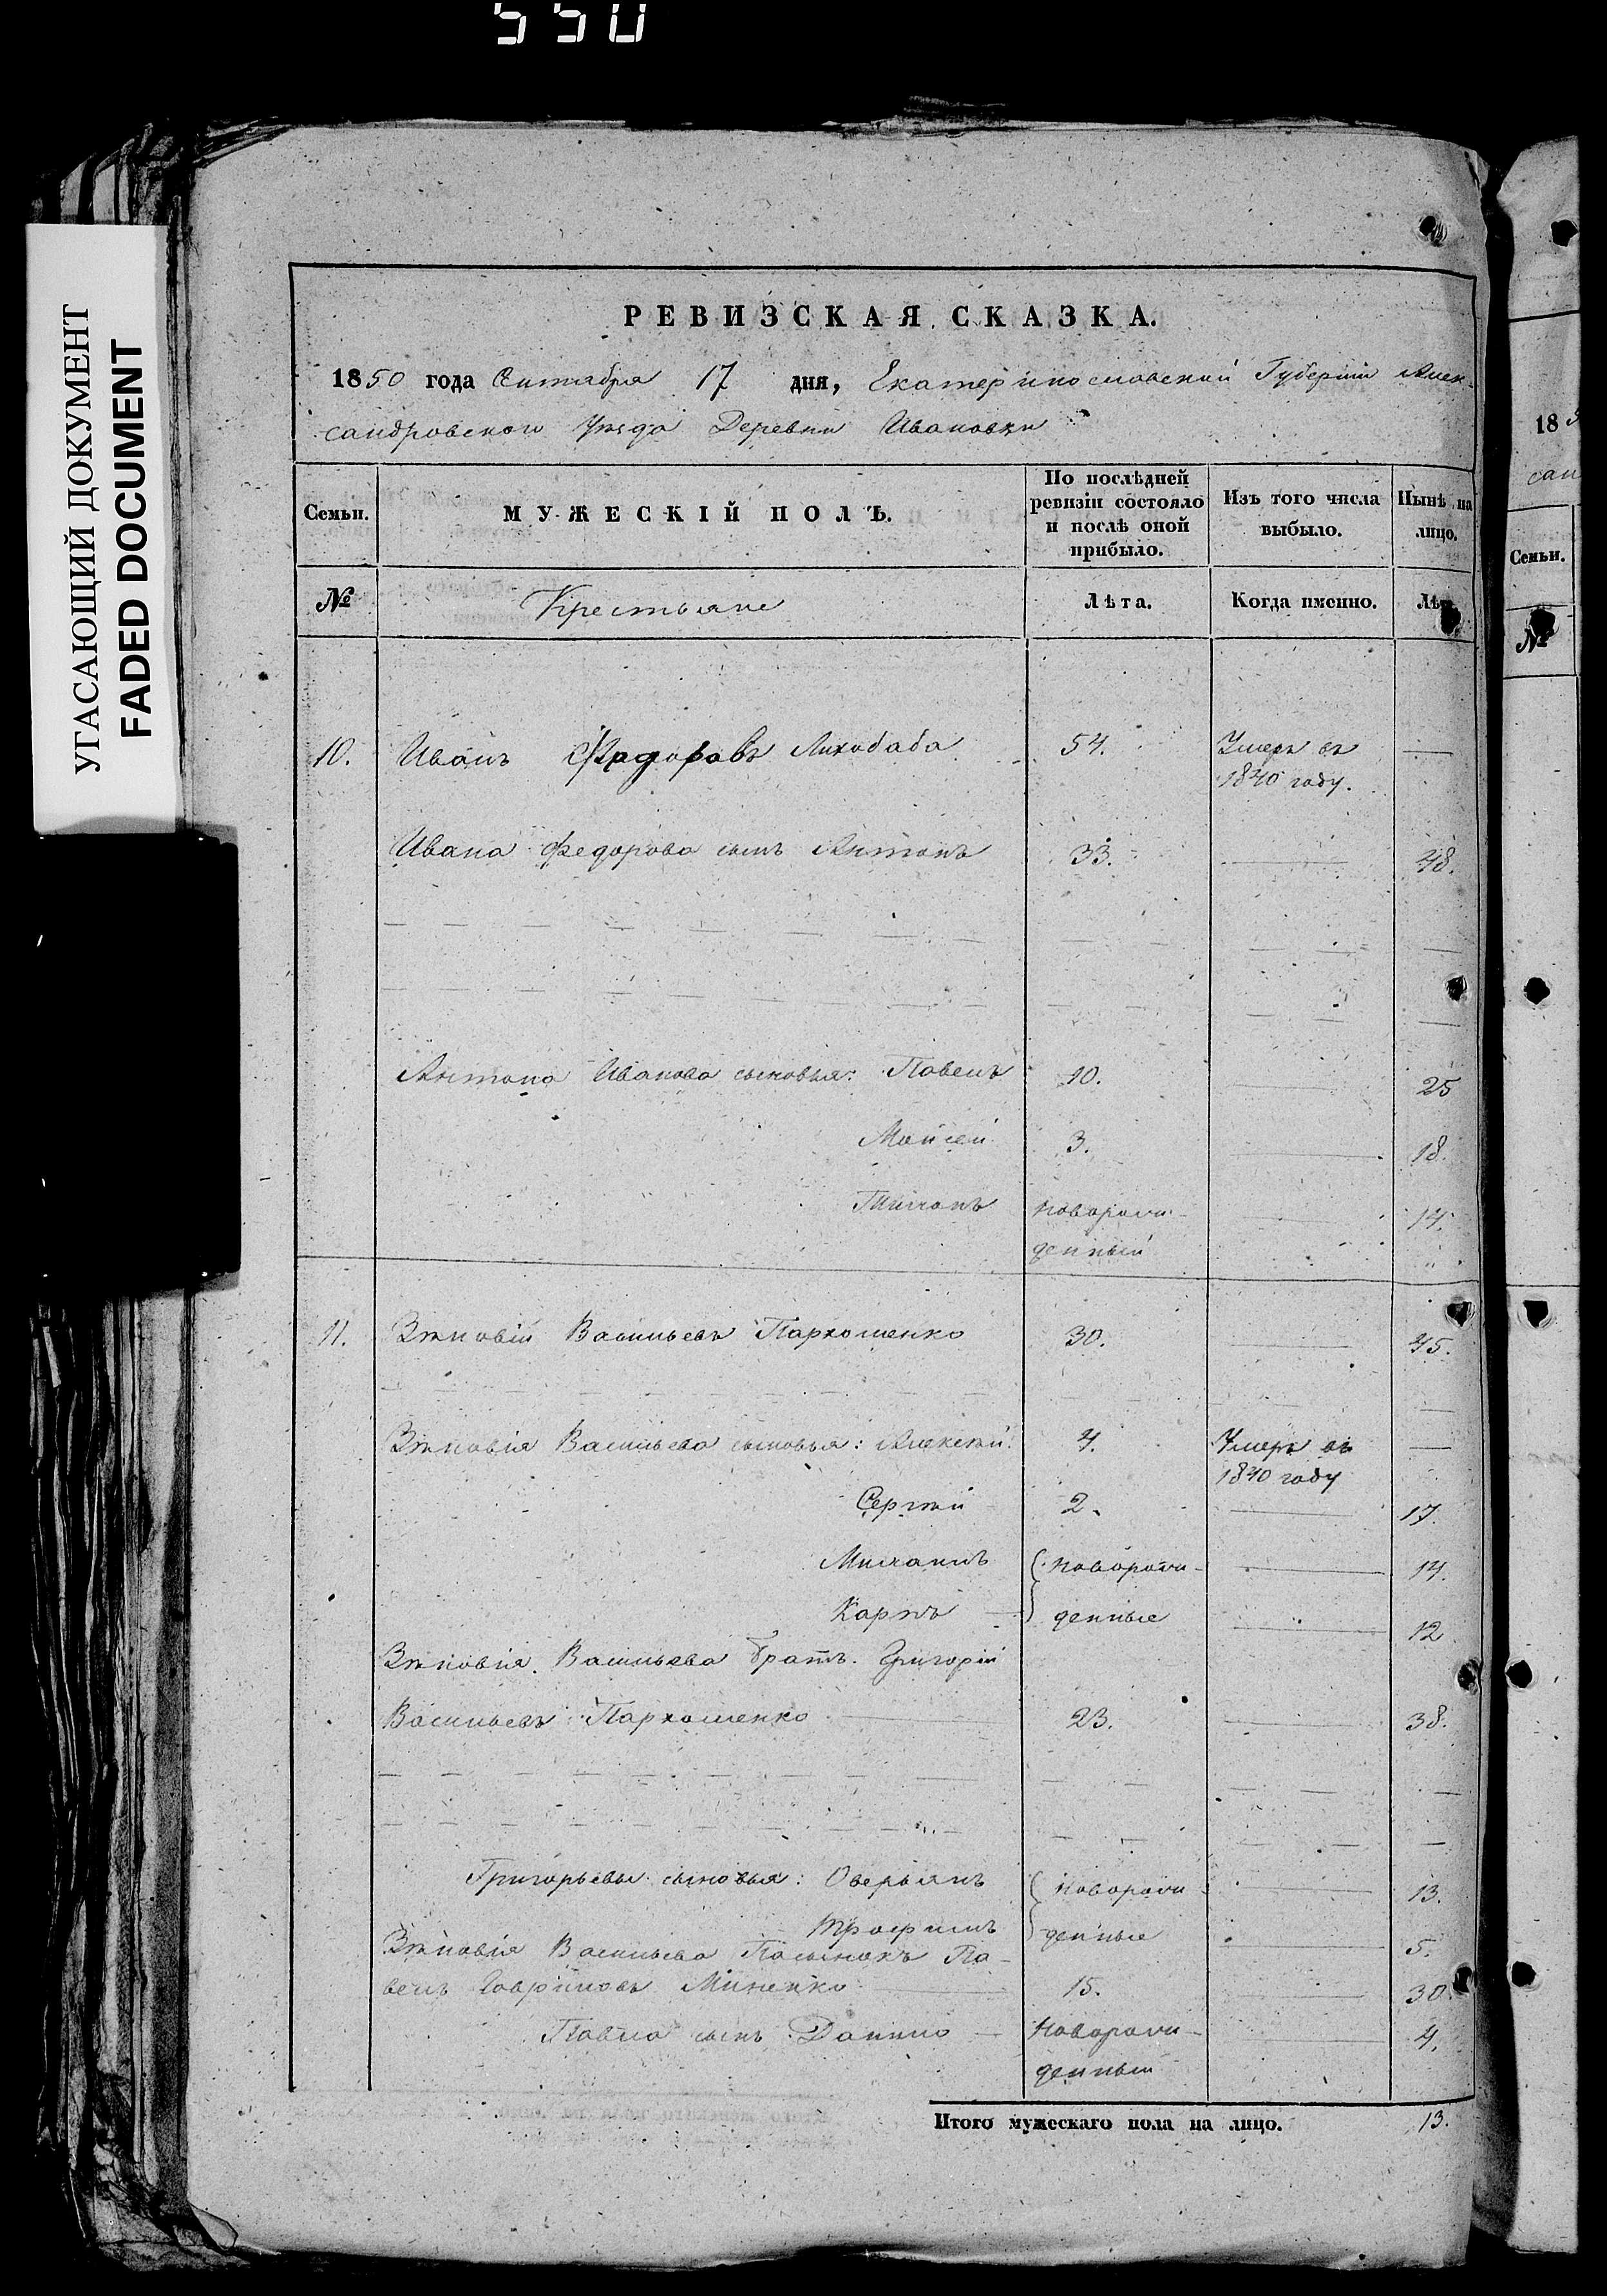 550
УГАСАЮЩИЙ ДОКУМЕНТ
FADED DOCUMENT
РЕВИЗСКАЯ СКАЗКА.
1850 года Сентября 17 дня, Екатеринославской Губерніи Алек-
сандровского Уѣзда Деревни Ивановки
Семьи. МУЖЕСКІЙ ПОЛЪ. По послѣдней ревизіи состояло и послѣ оной прибыло. Изъ того числа выбыло. Нынѣ на лицо.
№ Крестьяне Лѣта. Когда именно. Лѣта.
10. Иванъ Федоровъ Лихобаба 54. Умеръ въ
1840 году.
Ивана Федорова сынъ Антонъ 33. 48.
Антона Иванова сыновья: Павелъ 10. 25
Мойсей 3. 18.
Тихонъ новорож- 14.
денный
11. Зѣновій Васильевъ Пархоменко 30. 45.
Зѣновія Васильева сыновья: Алексѣй. 4. Умеръ въ
1840 году
Сергѣй 2. 17.
Михаилъ новорож- 14.
Карпъ денные 12
Зѣновія Васильева братъ Григорій
Васильевъ Пархоменко 23. 38.
Григорьевы сыновья: Оверьянъ новорож- 13.
Трофимъ денные 5.
Зѣновія Васильева Пасынокъ Па-
велъ Гавриловъ Миненко 15. 30.
Павла сынъ Данило новорож- 4.
денный
Итого мужескаго пола на лицо. 13.
18
сан
Семьи.
№